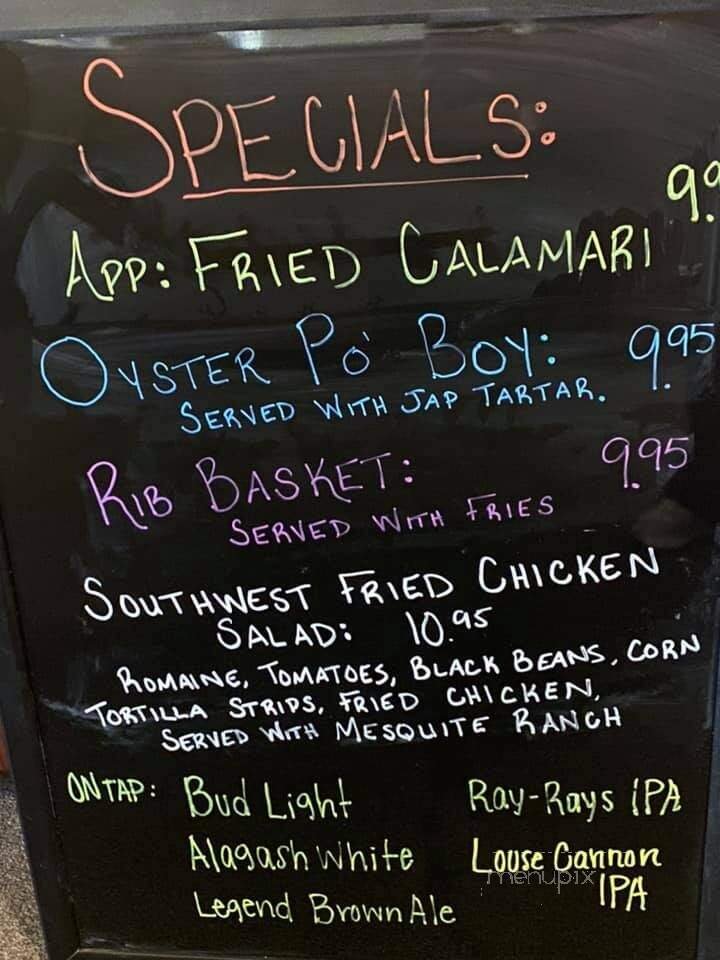 SPECIALS:
9.9
APP: FRIED CALAMARI
OYSTER PO' BOY: 9.95
SERVED WITH JAP TARTAR.
RIB BASKET: 9.95
SERVED WITH FRIES
SOUTHWEST FRIED CHICKEN
SALAD: 10.95
ROMAINE, TOMATOES, BLACK BEANS, CORN
TORTILLA STRIPS, FRIED CHICKEN,
SERVED WITH MESQUITE RANCH
ON TAP: Bud Light Ray-Rays IPA
Alagash White Louse Cannon
menupix
IPA
Legend Brown Ale